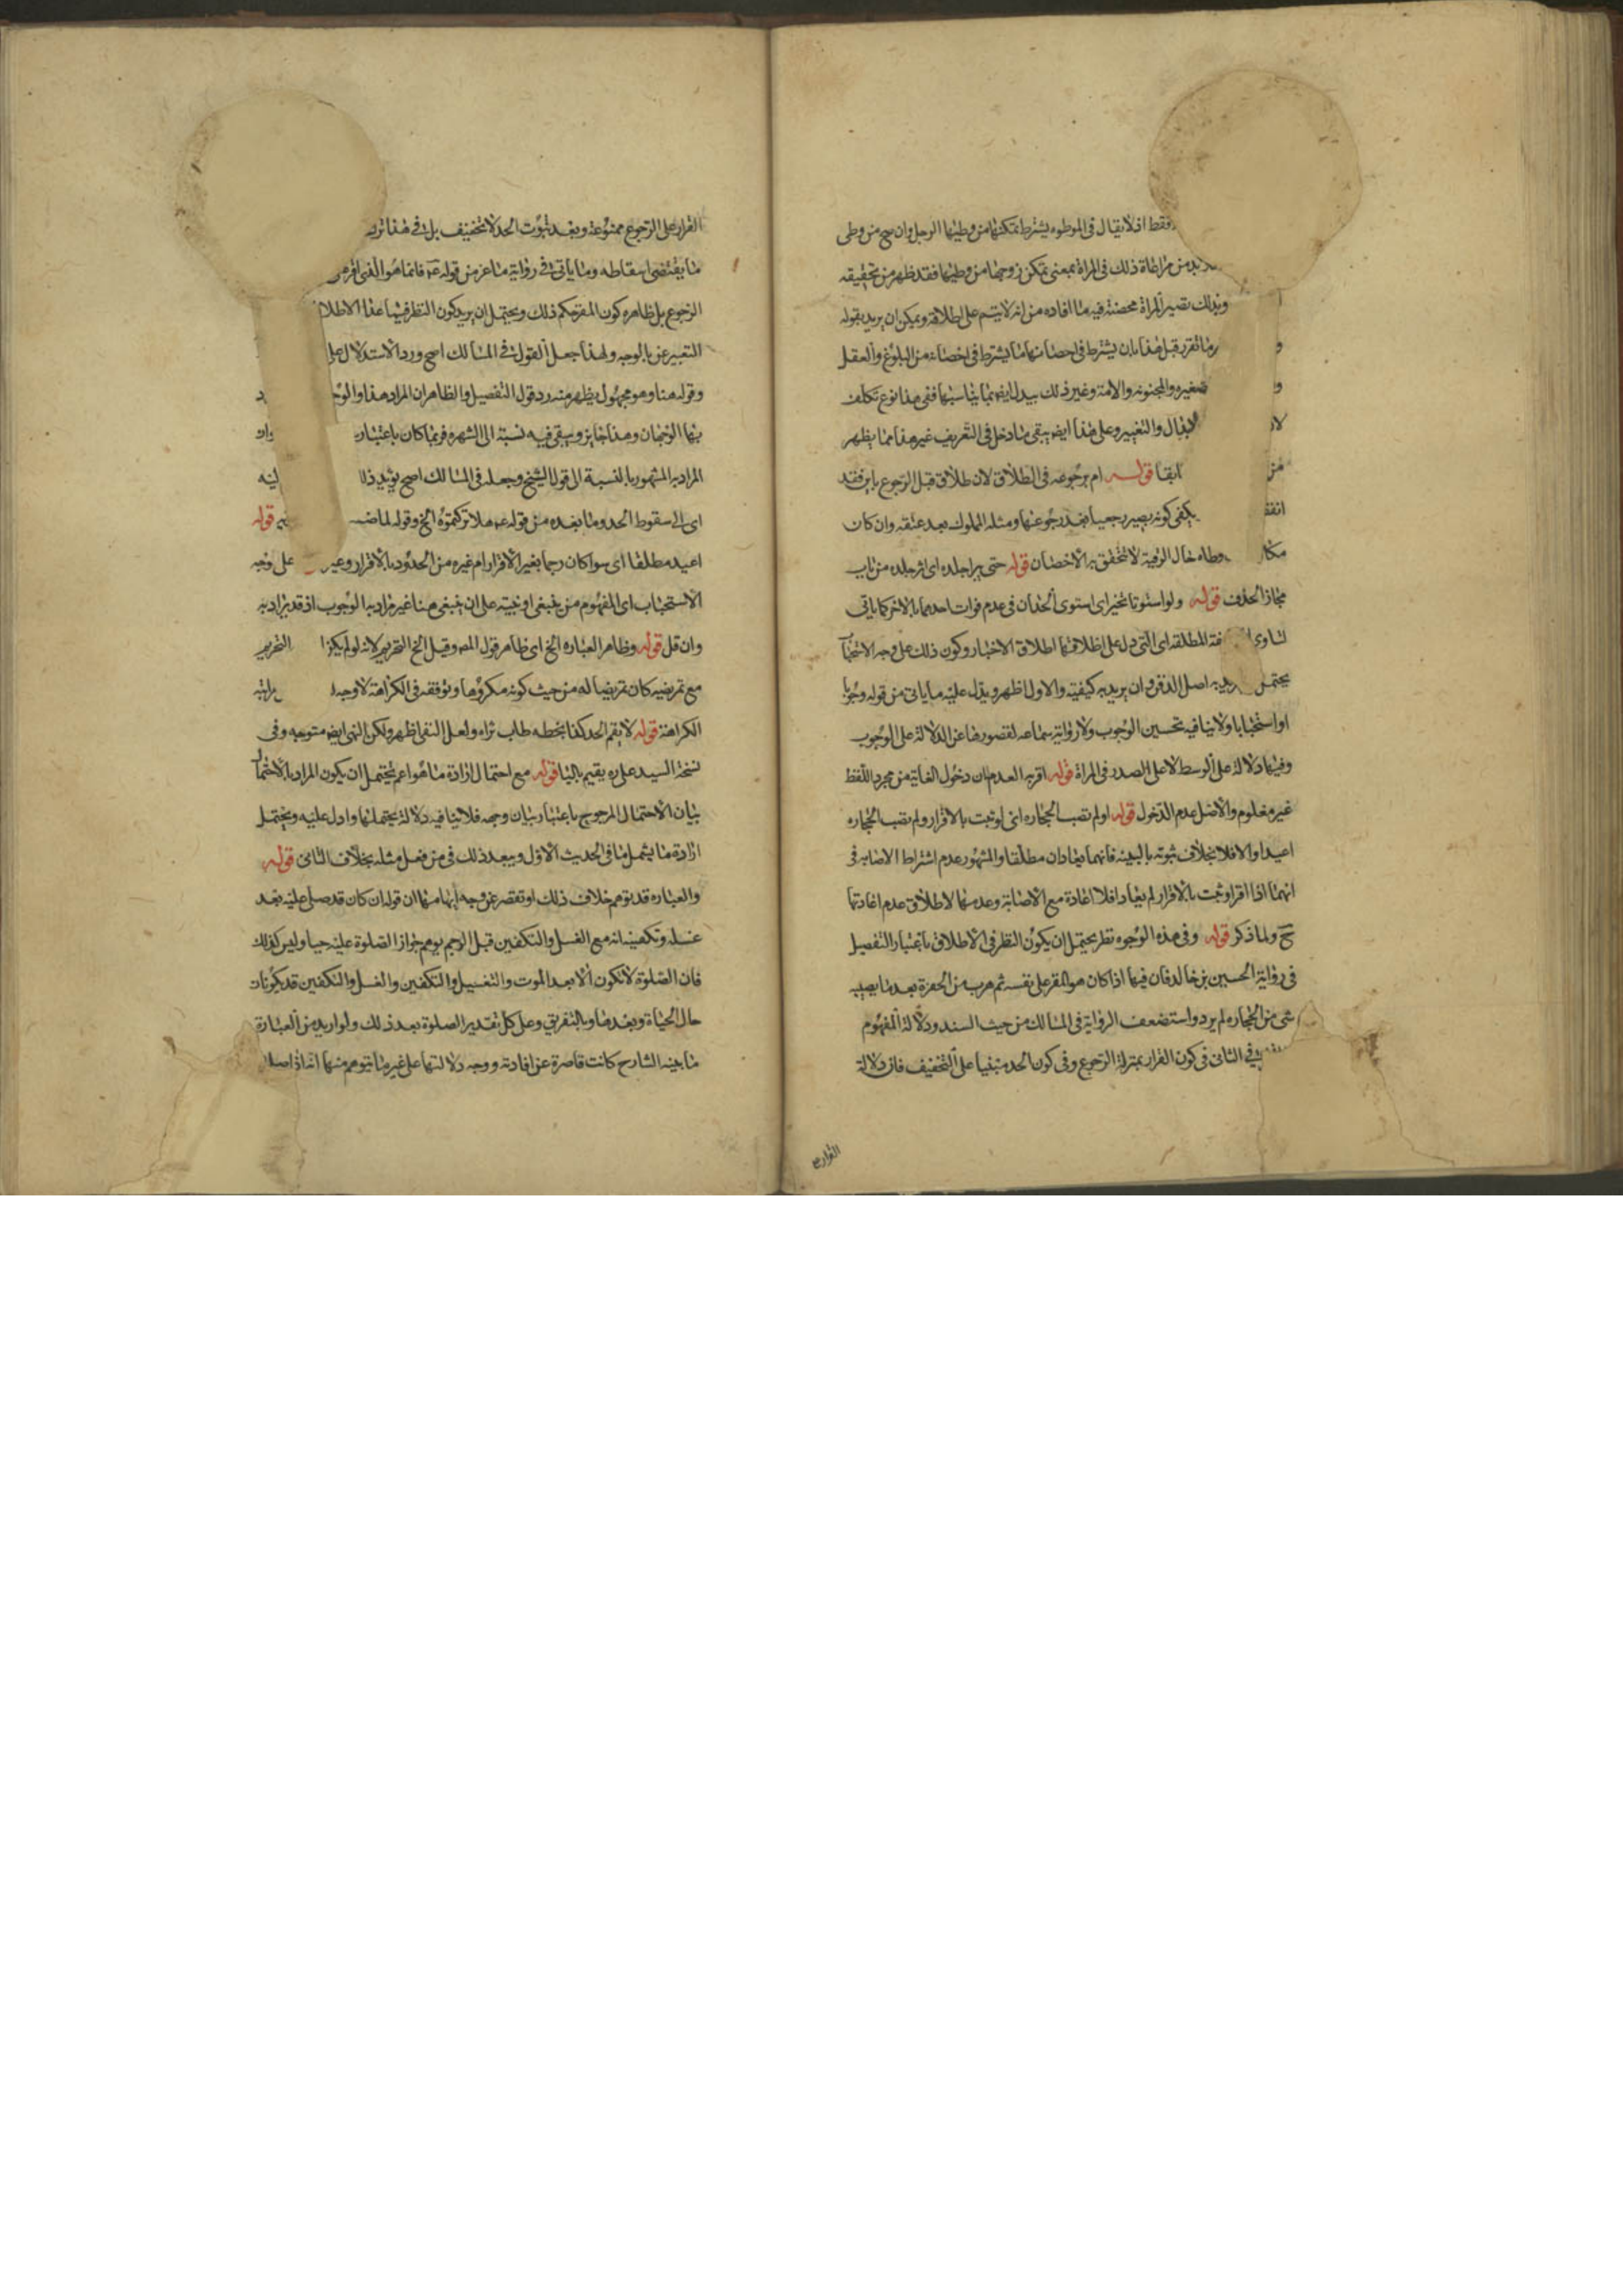 فقط اذ لا يقال فى الموطوءه يشترط تمكنها من وطيها الرجل وان صح من وطى
بد من مراعاة ذلك فى المراة بمعنى تمكن زوجها من وطيها فقد ظهر من تحقيقه
وبذلك تصير المراة محصنة فيه ما افاده من انه لا يتم على اطلاقه ويمكن ان يريد بقوله
و رما تقرر قبل هذا بان يشترط فى احصانها ما يشترط فى احصانه من البلوغ والعقل
و صغيره والمجنونه والامة وغير ذلك يبدل ايضا بما يناسبها ففى هذا نوع تكلف
لا بدال والتغيير وعلى هذا ايضا يبقى ما دخل فى التعريف غير هذا مما يظهر
من ابقا قوله ام برجوعه فى الطلاق لان طلاق قبل الرجوع باين فقد
انقـ يكفى كونه يصير رجعيا بعد رجوعها ومثله المملوك بعد عتقه وان كان
مكا وطاه حال الرقية لا تتحقق به الاحصان قوله حتى يبرا جلده اى اثر جلده من باب
مجاز الحذف قوله ولو استوتا تخير اى استوى الحدان فى عدم فوات احدهما بالاخر كما ياتى
لتساوى فة المطلقه اى التى دل على اطلاقها اطلاق الاخبار وكون ذلك على وجه الاستحبا
يحتمل يريد به اصل الدفن وان يريد به كيفيته والاول اظهر ويدل عليه ما ياتى من قوله وجوبا
او استحبابا ولا ينافيه تحسين الوجوب ولا رواية سماعه لقصورها عن الدلالة على الوجوب
وفيها دلالة على الوسط لا على الصدر فى المراة قوله اقربه العدم ان دخول الغاية من مجرد اللفظ
غير معلوم والاصل عدم الدخول قوله اولم تصب الحجاره اى لو ثبت بالاقرار ولم تصب الحجاره
اعيدا والا فلا بخلاف ثبوته بالبينه فانهما يعادان مطلقا والمشهور عدم اشتراط الاصابه فى
انهما اذا اقرا وثبت بالاقرار لم يعادا فلا اعادة مع الاصابة وعدمها لاطلاق عدم اعادتها
ح ولما ذكر قوله وفى هذه الوجوه نظر يحتمل ان يكون النظر فى الاطلاق باعتبار التفصيل
فى رواية الحسين بن خالد فان فيها اذا كان هو المقر على نفسه ثم هرب من الحفرة بعد ما يصيبه
شى من الحجاره لم يرد واستضعف الرواية فى المسالك من حيث السند ودلالة المفهوم
فى الثانى فى كون الفرار بمنزلة الرجوع وفى كون الحد مبنيا على التخفيف فان دلالة
الفرار على
الفرار على الرجوع ممنوعة وبعد ثبوت الحد لا تخفيف بل فى هذا ترك
ما يقتضى اسقاطه وما ياتى فى رواية ماعز من قوله ع فانما هو الذى اقر
الرجوع بل ظاهره كون المقر حكم ذلك ويحتمل ان يريد كون النظر فيما عدا الاطلا
التعبير عن بالوجه ولهذا جعل القول فى المسالك اصح ورد الاستدلال على
وقوله هنا وهو مجهول يظهر منه رد قول التفصيل والظاهر ان المراد هذا والوجـ د
بهما الوجهان وهذا جايز ويبقى فيه نسبة الى الشهره فربما كان باعتبار واو
المراد به المشهور بالنسبة الى قول الشيخ وجعله فى المسالك اصح يؤيد ذلك ليه
اى الى سقوط الحد وما بعده من قوله ع هلا تركتموه الخ وقوله لماضـ قوله
اعيد مطلقا اى سوا كان رجما بغير الاقرار ام غيره من الحدود بالاقرار وغير على وجه
الاستحباب اى المفهوم من ينبغى او نبيته على ان ينبغى هنا غير مراد به الوجوب اذ قد يراد به
وان قل قوله وظاهر العباره الخ اى ظاهر قول المص وقيل الخ التحريم لانه لو لم يكن التحريم
مع تمريضيه كان تمريضا له من حيث كونه مكروها وتوقفه فى الكراهة لا وجه راتبه
الكراهة قوله لا يقم الحد كذا بخطه طاب ثراه ولعل النفى اظهر ولكن النهى ايضا متوجه وفى
نسخة السيد على ره يقيم باليا قوله مع احتمال ارادة ما هو اعم يحتمل ان يكون المراد بالاحتمال
بيان الاحتمال المرجوح باعتبار بيان وجهه فلا ينافيه دلالة يحتملها وادل عليه ويحتمل
ارادة ما يشمل ما فى الحديث الاول ويبعد ذلك فى من فعل مثله بخلاف الثانى قوله
والعباره قد توهم خلاف ذلك او تقصر عن وجه ايهامها ان قوله ان كان قد صلى عليه بعد
غسله وتكفينه انه مع الغسل والتكفين قبل الرجم يوهم جواز الصلوة عليه حيا وليس كذلك
فان الصلوة لا تكون الا بعد الموت والتغسيل والتكفين والغسل والتكفين قد يكونان
حال الحياة وبعدها وبالتفريق وعلى كل تقدير الصلوة بعد ذلك ولو اريد من العبارة
ما بينه الشارح كانت قاصرة عن افادته ووجه دلالتها على غير ما يتوهم منها انه اذا صلى